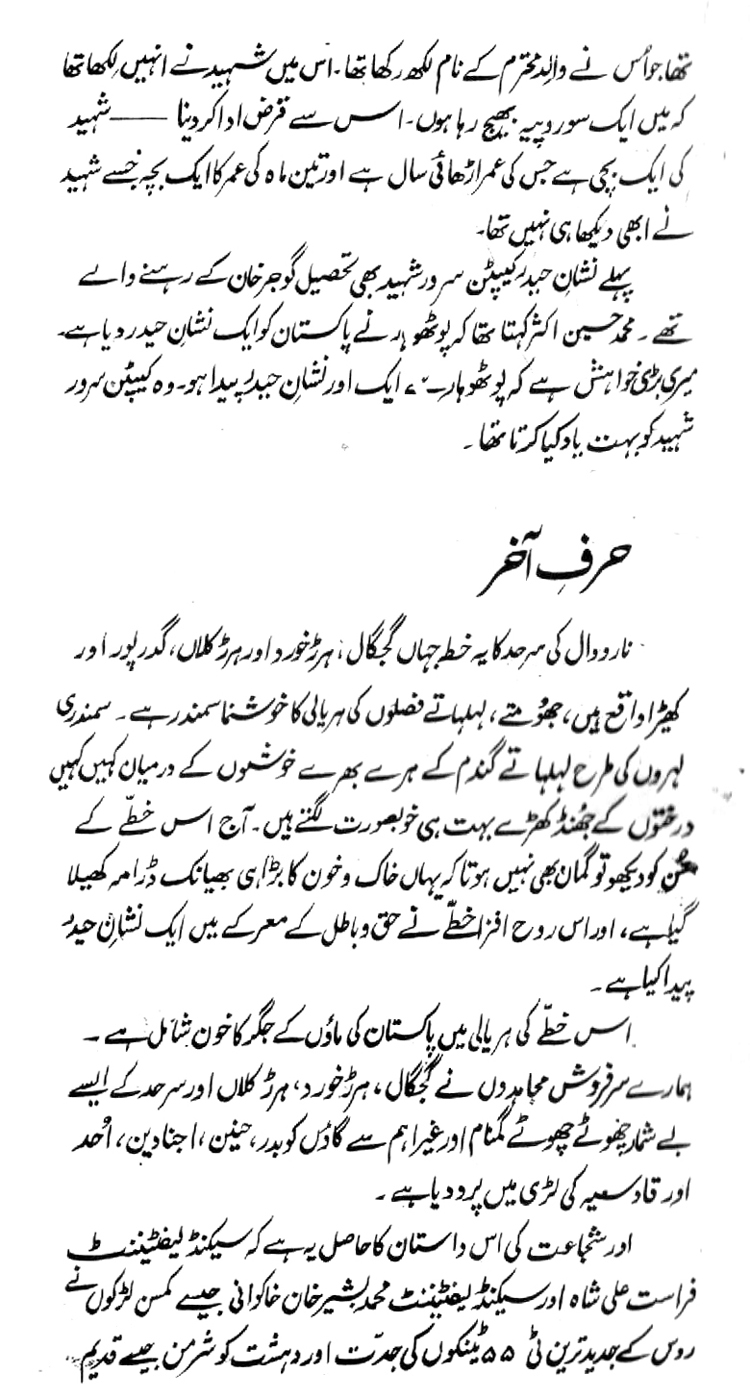 تھا جو اُس نے والد محترم کے نام لکھ رکھا تھا۔ اس میں شہید نے انہیں لکھا تھا
کہ میں ایک سو روپیہ بھیج رہا ہوں۔ اس سے قرض ادا کر دینا ــــــ شہید
کی ایک بچی ہے جس کی عمر اڑھائی سال ہے اور تین ماہ کی عمر کا ایک بچہ جسے شہید
نے ابھی دیکھا ہی نہیں تھا۔
پہلے نشانِ حیدر کیپٹن سرور شہید بھی تحصیل گوجر خان کے رہنے والے
تھے۔ محمد حسین اکثر کہتا تھا کہ پوٹھوہار نے پاکستان کو ایک نشانِ حیدر دیا ہے۔
میری بڑی خواہش ہے کہ پوٹھوہار سے ایک اور نشانِ حیدر پیدا ہو۔ وہ کیپٹن سرور
شہید کو بہت یاد کیا کرتا تھا۔
حرفِ آخر
نارووال کی سرحد کا یہ خطہ جہاں گجگال، ہرڑ خورد اور ہرڑ کلاں، گدرپور اور
کھیڑا واقع ہیں، جھُومتے، لہلہاتے فصلوں کی ہریالی کا خوشنما سمندر ہے۔ سمندری
لہروں کی طرح لہلہاتے گندم کے ہرے بھرے خوشوں کے درمیان کہیں کہیں
درختوں کے جھُنڈ کھڑے بہت ہی خوبصورت لگتے ہیں۔ آج اس خطّے کے
حُسن کو دیکھو تو گمان بھی نہیں ہوتا کہ یہاں خاک و خون کا بڑا ہی بھیانک ڈرامہ کھیلا
گیا ہے، اور اس روح افزا خطّے نے حق و باطل کے معرکے میں ایک نشانِ حیدر
پیدا کیا ہے۔
اس خطّے کی ہریالی میں پاکستان کی ماؤں کے جگر کا خون شامل ہے۔
ہمارے سرفروش مجاہدوں نے گجگال، ہرڑ خورد، ہرڑ کلاں اور سرحد کے ایسے
بے شمار چھوٹے چھوٹے گمنام اور غیر اہم سے گاؤں کو بدر، حنین، اجنادین، اُحد
اور قادسیہ کی لڑی میں پرو دیا ہے۔
اور شجاعت کی اس داستان کا حاصل یہ ہے کہ سیکنڈ لیفٹیننٹ
فراست علی شاہ اور سیکنڈ لیفٹیننٹ محمد بشیر خان خاکوانی جیسے کمسن لڑکوں نے
روس کے جدید ترین ٹی ۵۵ ٹینکوں کی جدّت اور دہشت کو شرمن جیسے قدیم